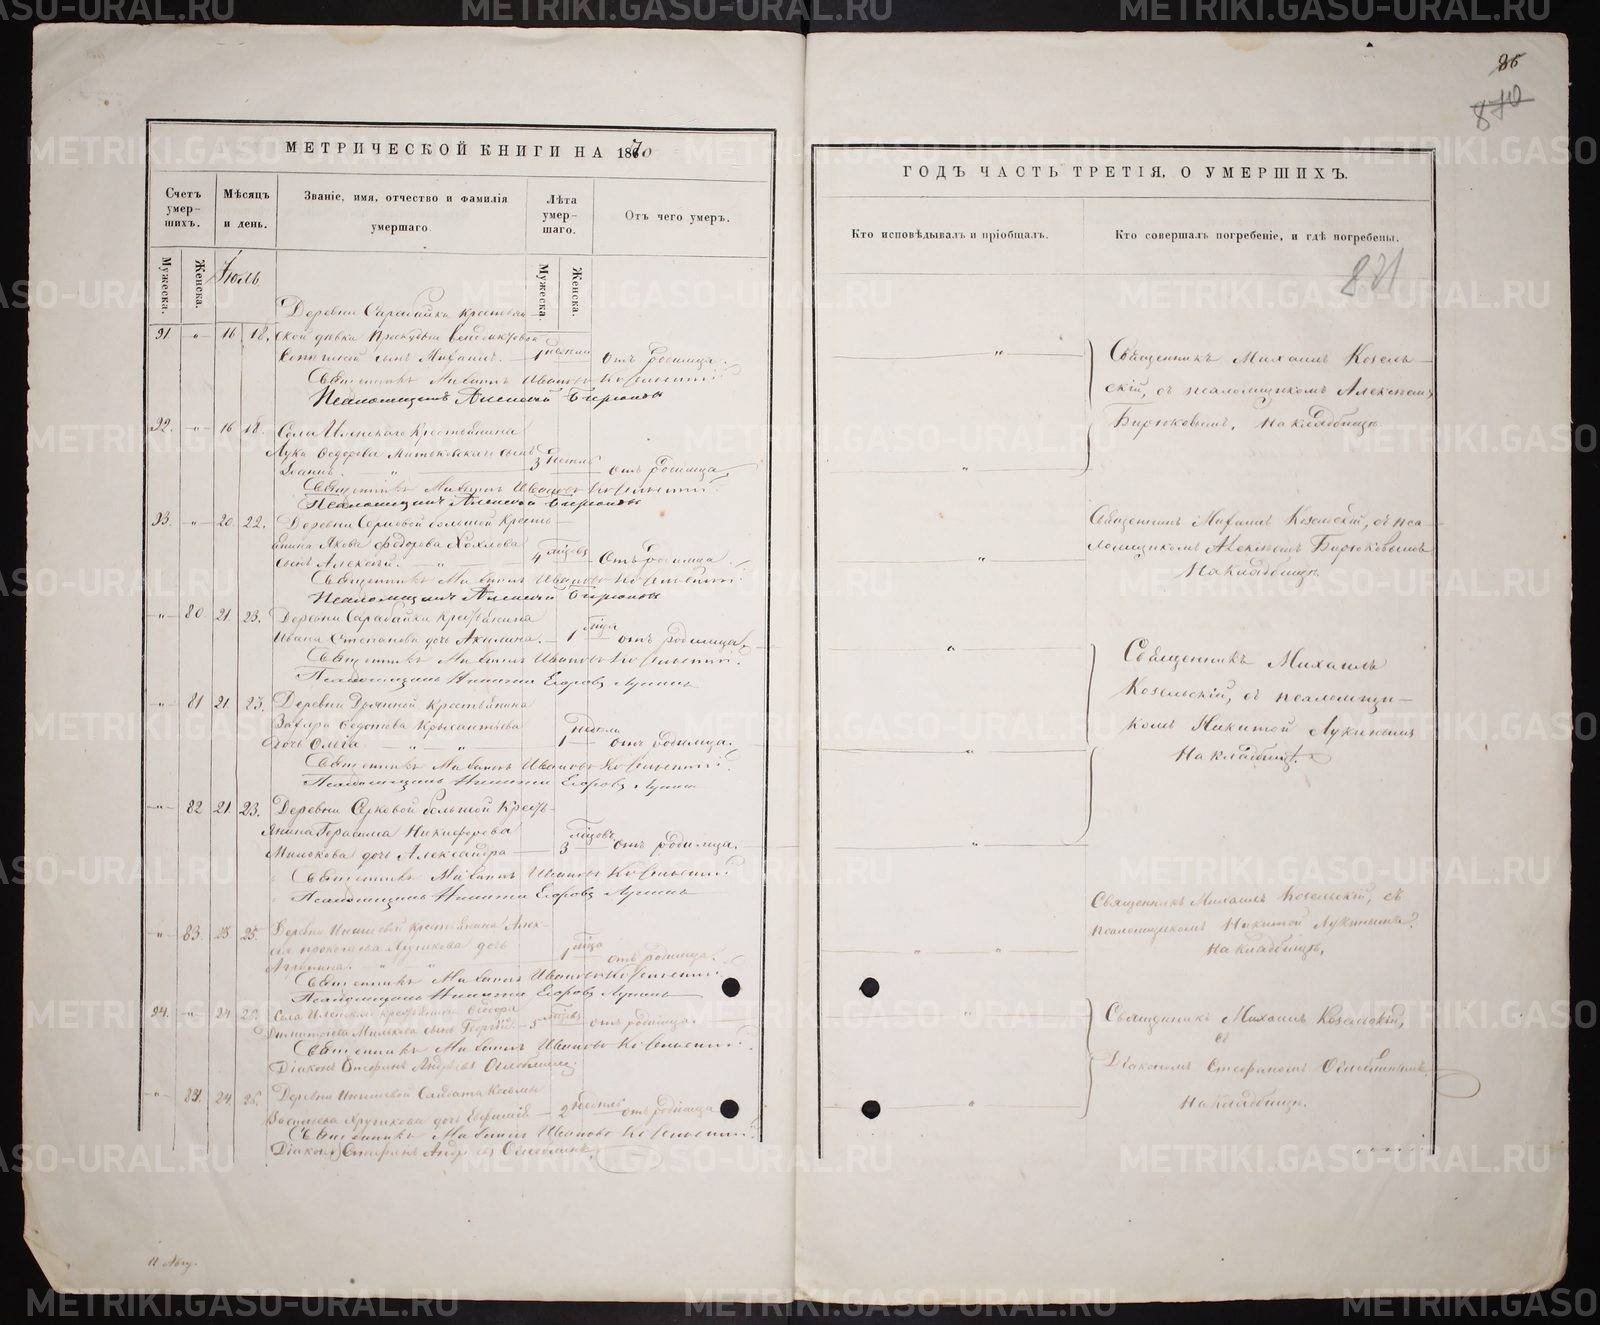 86
870
МЕТРИЧЕСКОЙ КНИГИ НА 1870
Счетъ умерших.
Мѣсяцъ и день.
Званіе, имя, отчество и фамилія умершаго.
Лѣта умершаго.
Отъ чего умеръ.
Мужеска.
Женска.
Іюль
Мужеска.
Женска.
Деревни Сарабайки крестьян-
91. " 16 18. ской дѣвки
сынъ Михаилъ. 1 недели отъ родимца.
Священникъ Михаилъ Ивановъ Козельскій
Псаломщикъ Алексѣй Бирюковъ
92. " 16 18. Села Иленскаго Крестьянина
Луки Ѳедорова сынъ
Іоаннъ. " 3 недѣль отъ родимца,
Священникъ Михаилъ Ивановъ Козельскій
Псаломщикъ Алексѣй Бирюковъ
93. " 20. 22. Деревни Серковой большой Кресть-
янина Якова Федорова Хохлова
сынъ Алексѣй. 4 мѣсяцъ Отъ родимца.
Священникъ Михаилъ Ивановъ Козельскій
Псаломщикъ Алексѣй Бирюковъ
" 80 21. 23. Деревни Сарабайки Крестьянина
Ивана Степанова дочь Акилина. 1 мѣсца отъ родимца,
Священникъ Михаилъ Ивановъ Козельскій
Псаломщикъ Никита Егоровъ Лукинъ
" 81 21 23. Деревни Дрянной Крестьянина
Захара Ѳедотова Крысантьева
дочь Ольга " " 1 недели отъ родимца.
Священникъ Михаилъ Ивановъ Козельскій
Псаломщикъ Никита Егоровъ Лукинъ
" 82 21. 23. Деревни Серковой большой Кресть-
янина Герасима Никифорова
Милюкова дочь Александра 3 мѣсцовъ отъ родимца.
Священникъ Михаилъ Ивановъ Козельскій
Псаломщикъ Никита Егоровъ Лукинъ
" 83. 23. 25. Деревни Крестьянина Алек-
сѣя дочь
Агрипина. " " 1 мѣсца отъ родимца.
Священникъ Михаилъ Ивановъ Козельскій
Псаломщикъ Никита Егоровъ Лукинъ
94. " 24 26. Села Иленскаго Крестьянина Ѳедора
сынъ Георгій. 5 отъ родимца.
Священникъ Михаилъ Ивановъ Козельскій
Діаконъ Стефанъ Андреевъ Оглоблинъ
" 84. 24 26. Деревни Солдата Козьмы
Васильева дочь 2 недѣль отъ родимца
Священникъ Михаилъ Ивановъ Козельскій
Діаконъ Стефанъ Андреевъ Оглоблинъ.
11 Авг.
ГОДЪ ЧАСТЬ ТРЕТІЯ, О УМЕРШИХЪ.
Кто исповѣдывалъ и пріобщалъ.
Кто совершалъ погребеніе, и гдѣ погребены.
Священникъ Михаилъ Козель-
скій, съ псаломщикомъ Алексѣемъ
Бирюковымъ, На кладбищѣ
Священникъ Михаилъ Козельскій, съ пса-
ломщикомъ Алексѣемъ Бирюковымъ
На кладбищѣ
Священникъ Михаилъ
Козельскій, съ псаломщи-
комъ Никитой Лукинымъ
На кладбищѣ.
Священникъ Михаилъ Козельскій, съ
псаломщикомъ Никитой Лукинымъ
На кладбищѣ,
Священникъ Михаилъ Козельскій,
съ
Діакономъ Стефаномъ Оглоблинымъ
На кладбищѣ.
METRIKI.GASO-URAL.RU